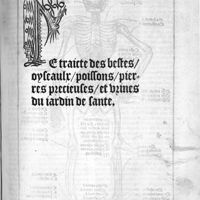 Le traicte des bestes/
oyseaulx/poissons/pier-
res precieuses/et vrines
du iardin de sante.